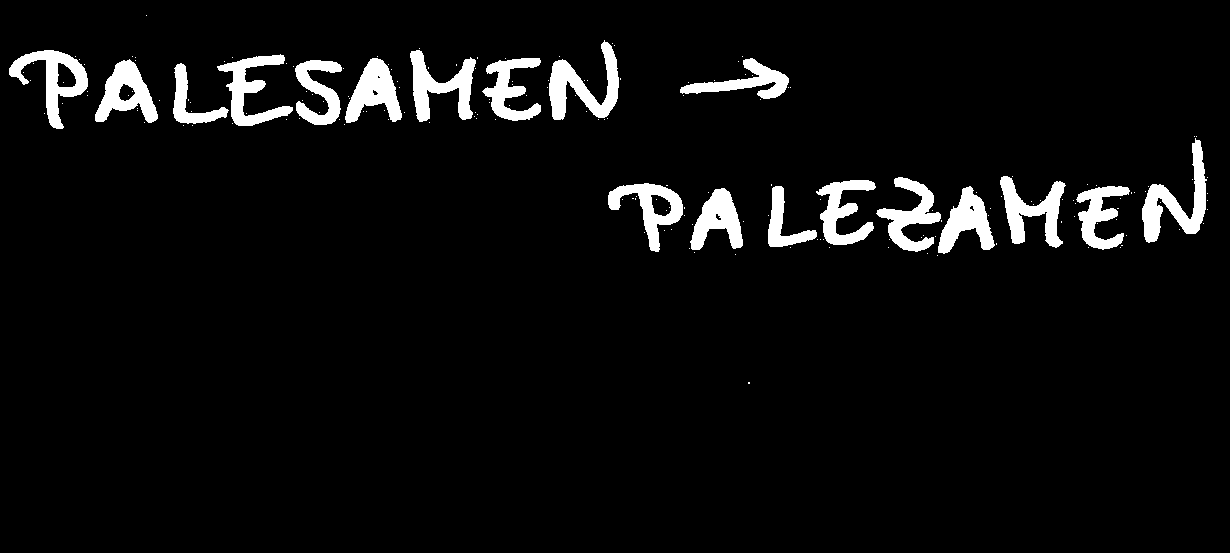 PALESAMEN →
PALEZAMEN